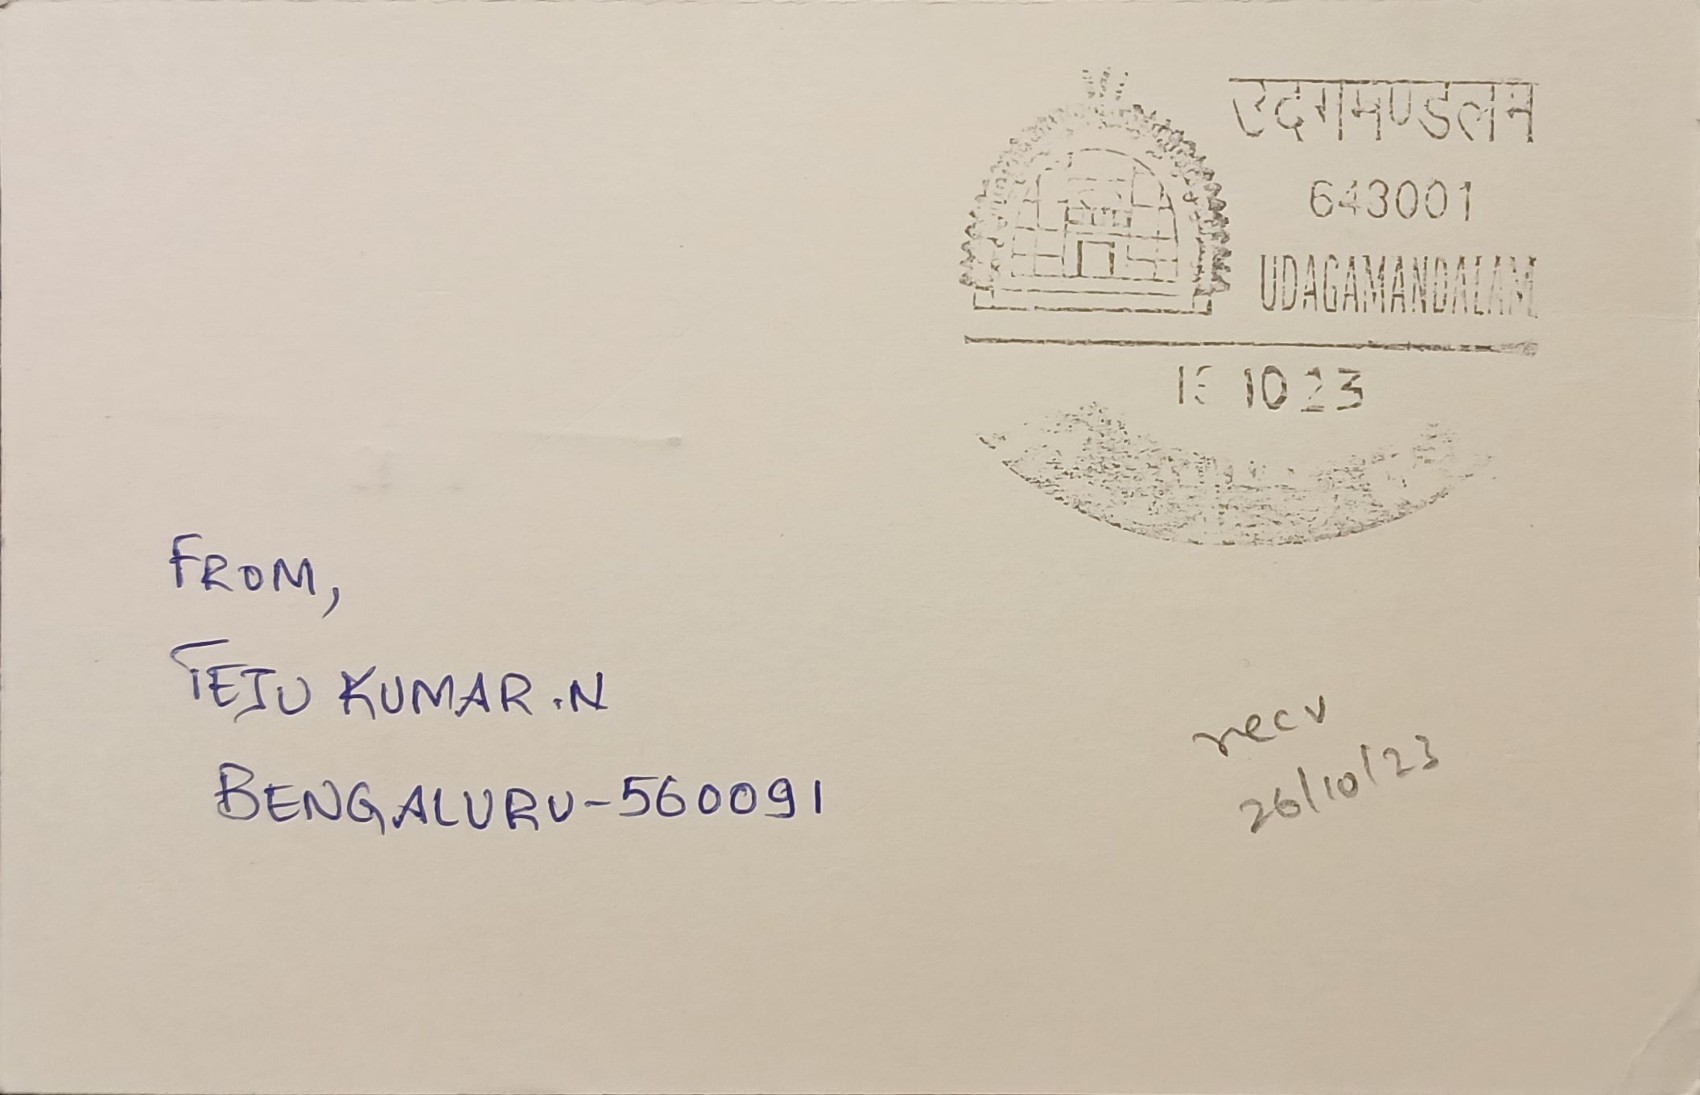 उदगमण्डलम
643001
UDAGAMANDALAM
10 23
FROM,
TEJU KUMAR.N
BENGALURU-560091
recv
26/10/23